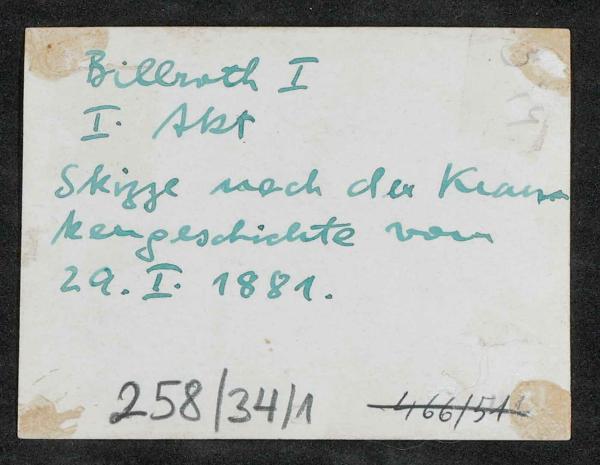 Billroth I
I. Akt
Skizze nach der Kran
kengeschichte vom
29. I. 1881.
258/34/1
466/511